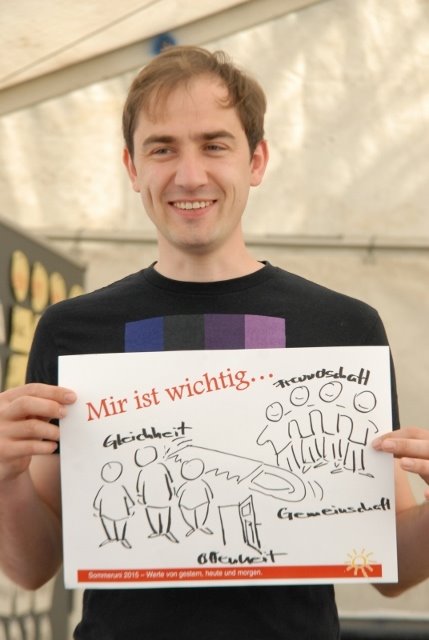 Mir ist wichtig...
Freundschaft
Gleichheit
Gemeinschaft
Offenheit
Sommeruni 2015 – Werte von gestern, heute und morgen.